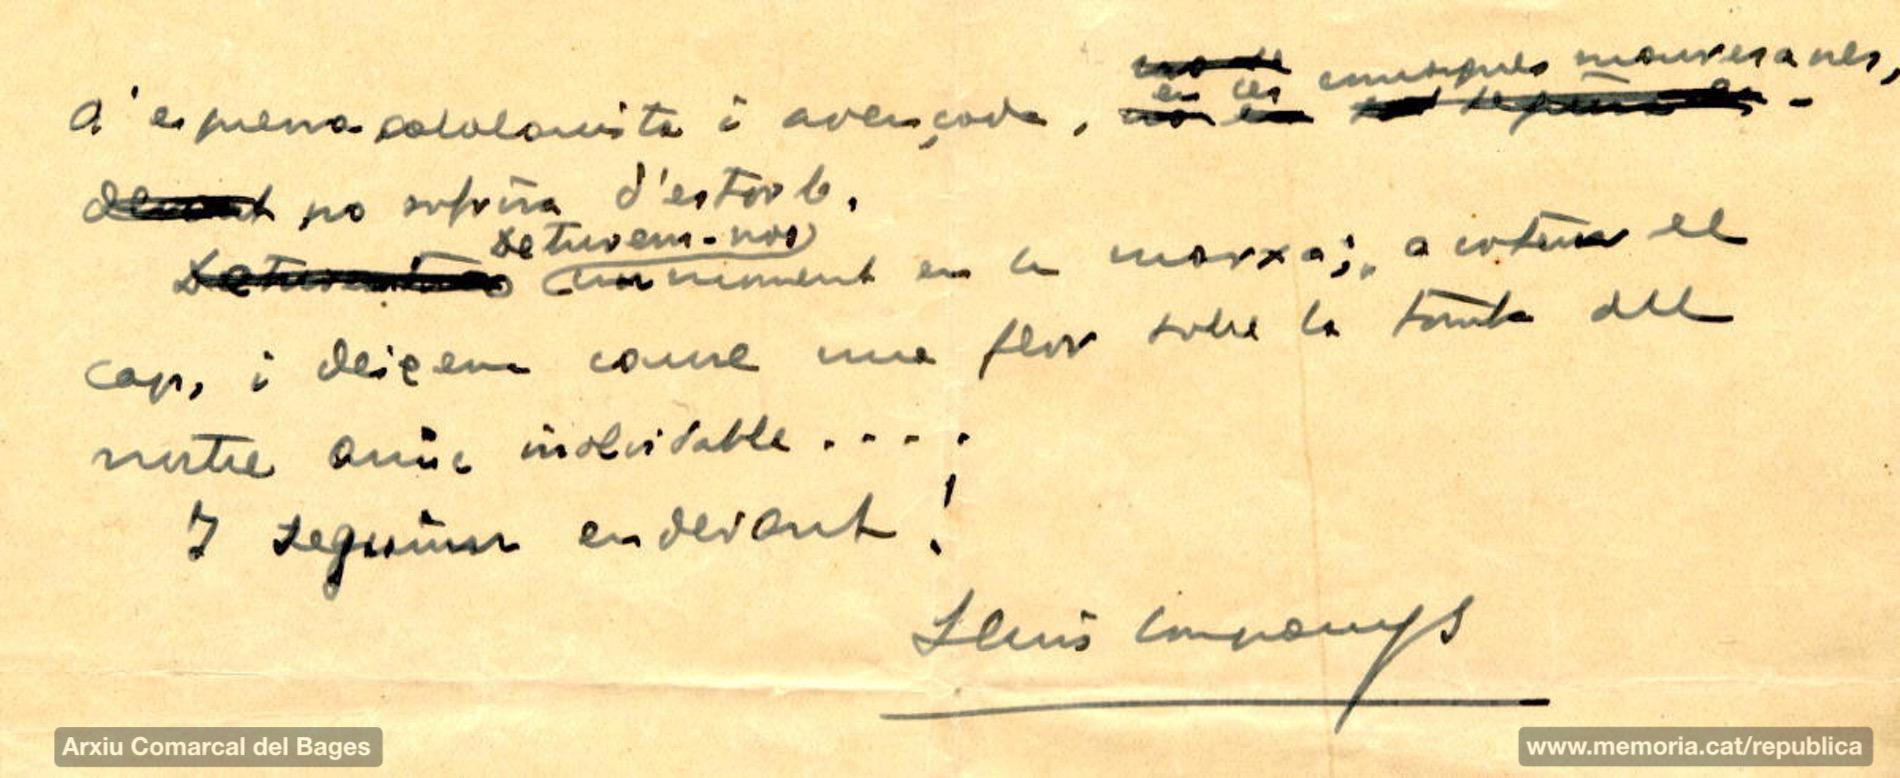 en les comarques manresanes,
d'esquerra catalanista i avençada,
no sofrira d'estorb.
Deturem-nos
un moment en la marxa; acotem el
cap, i deixem caure una flor sobre la tomba del
nostre amic inolvidable . . . .
I seguim endevant !
Lluis Companys
Arxiu Comarcal del Bages
www.memoria.cat/republica